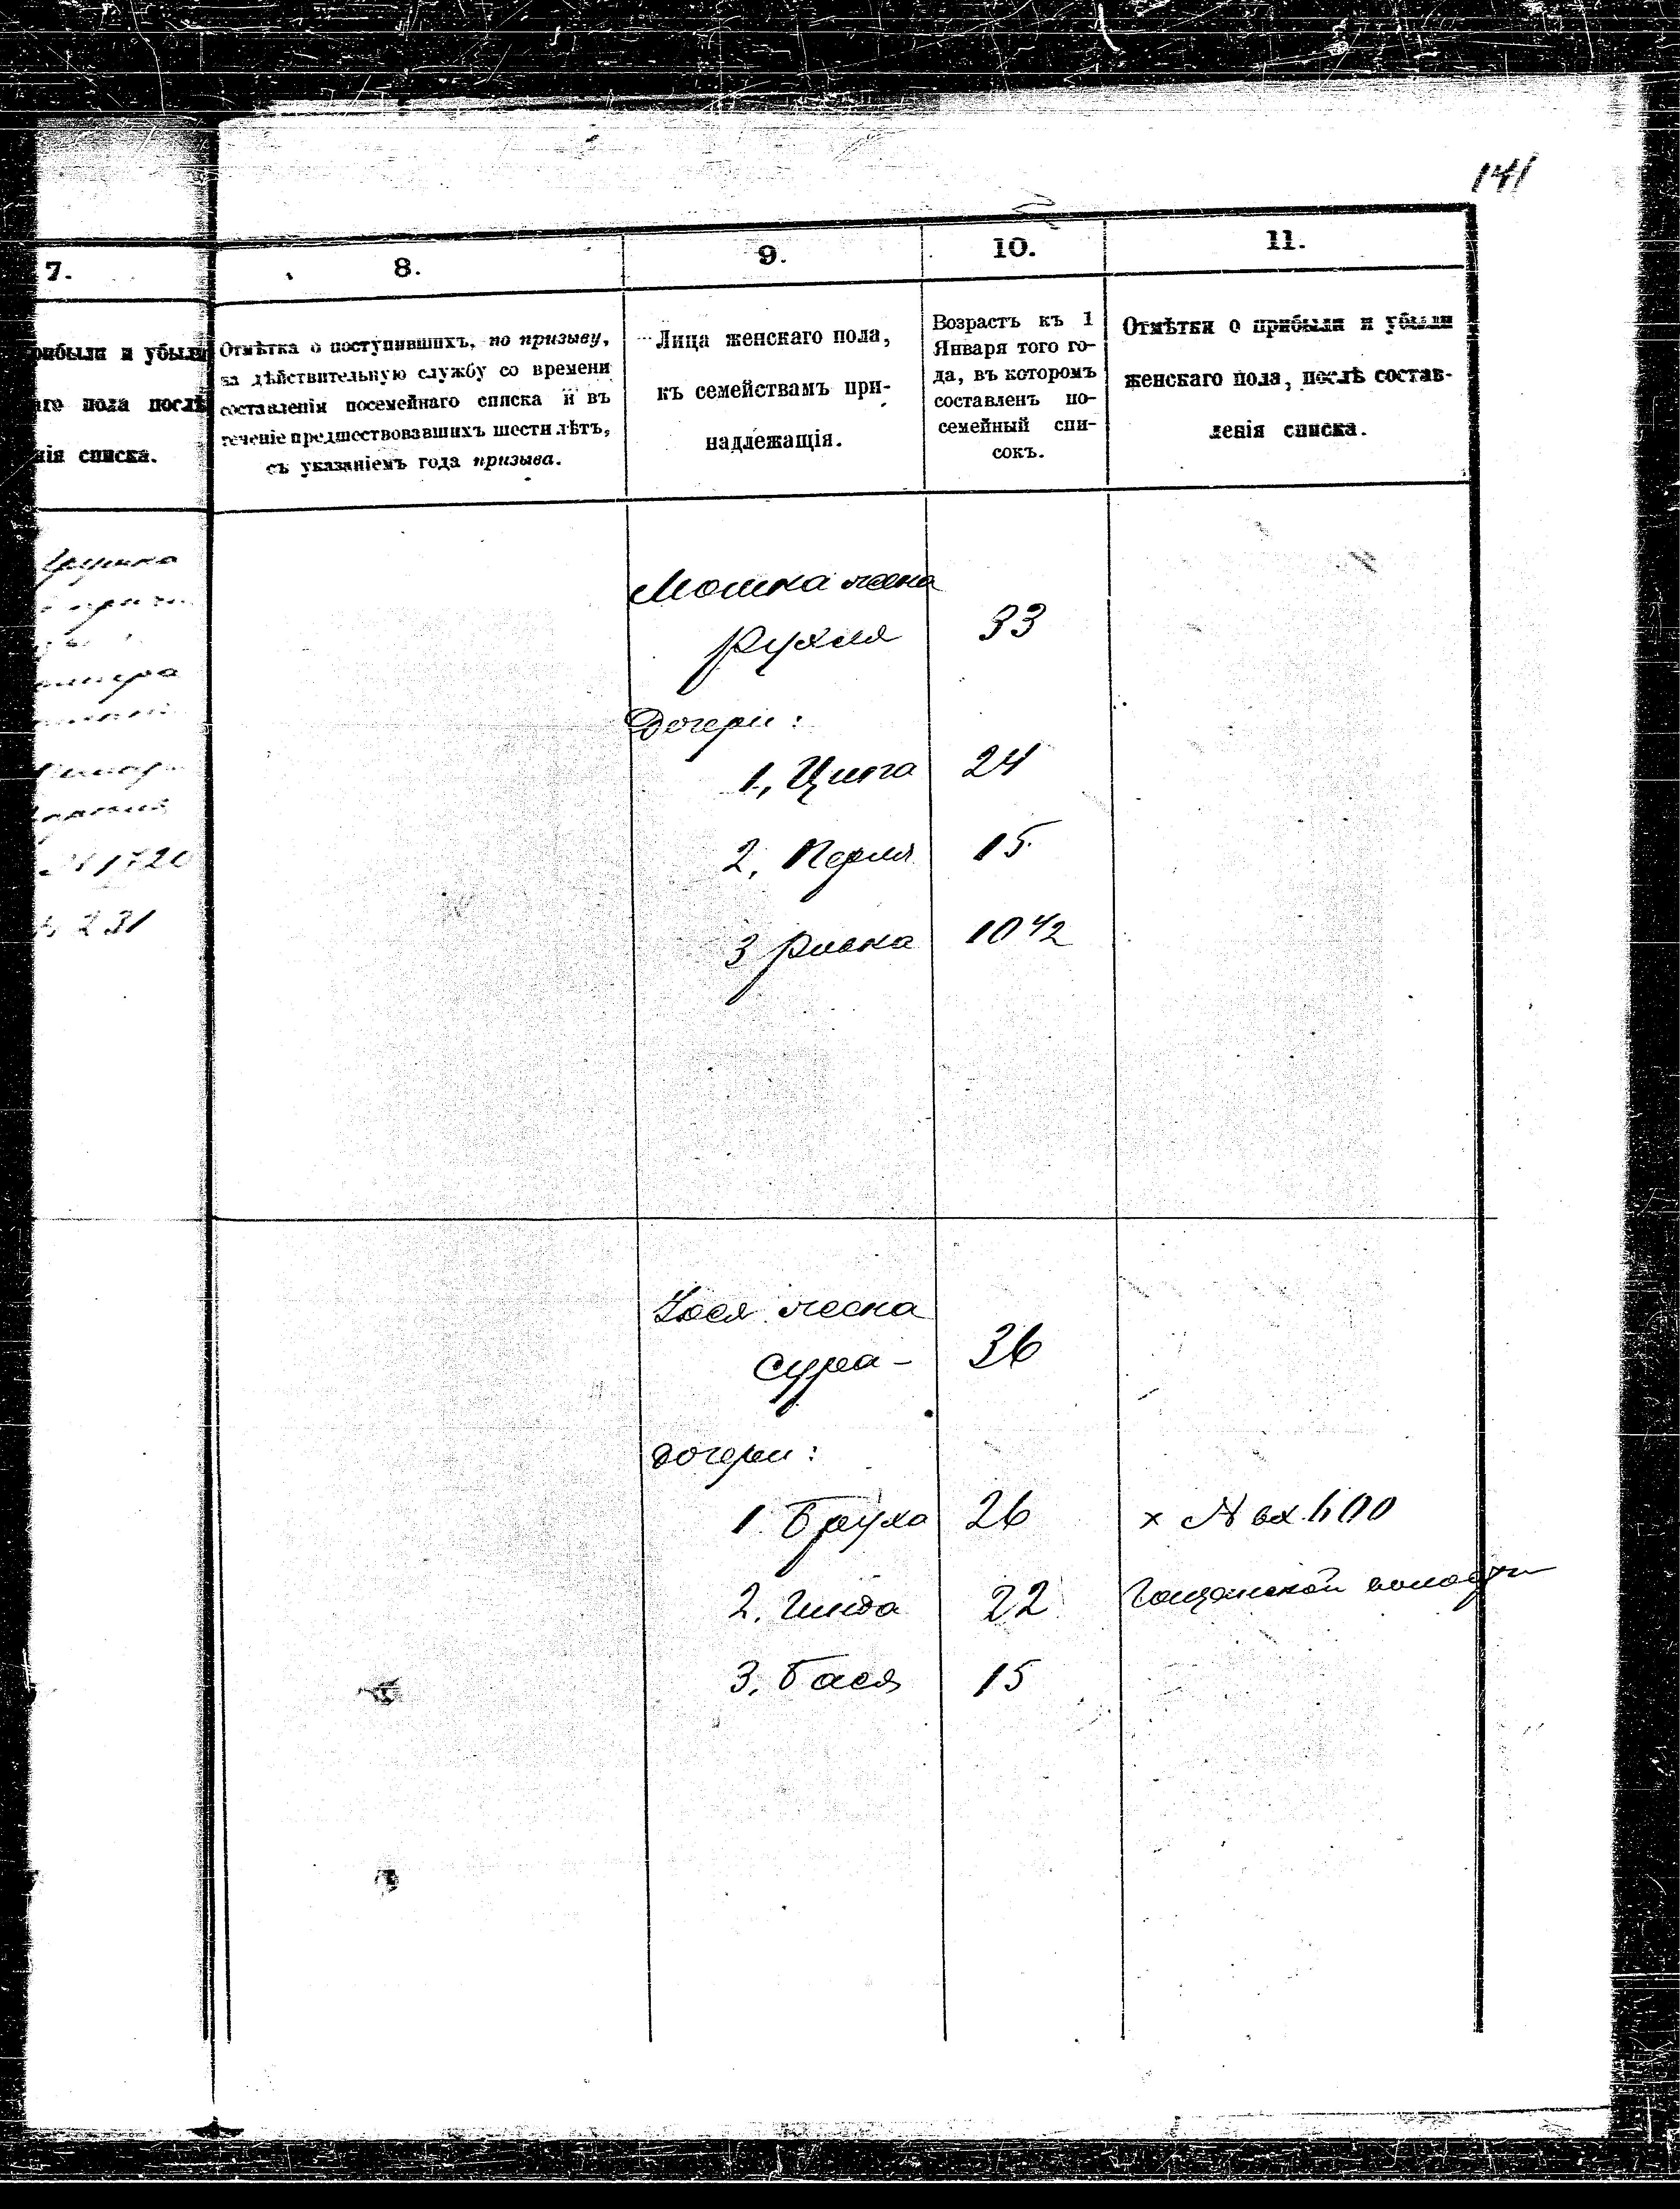 141
7.
8.
9.
10.
11.
рибыли и убыли
аго пола послѣ
нія списка.
Отмѣтка о поступившихъ, по призыву,
на дѣйствительную службу со времени
составленія посемейнаго списка и въ
теченіе предшествовавшихъ шести лѣтъ,
съ указаніемъ года призыва.
Лица женскаго пола,
къ семействамъ при-
надлежащія.
Возрастъ къ 1
Января того го-
да, въ которомъ
составленъ по-
семейный спи-
сокъ.
Отмѣтки о прибыли и убыли
женскаго пола, послѣ состав-
ленія списка.
Мошка жена
Рухля 33
Дочери:
1, Ципа 24
2, Перля 15
3 Ривка 10 1/2
№ 1720
231
жена
Сура - 36
дочери:
1. Бруха 26 x № вх. 600
2. Гинда 22 Гощанской волости
3. Бася 15